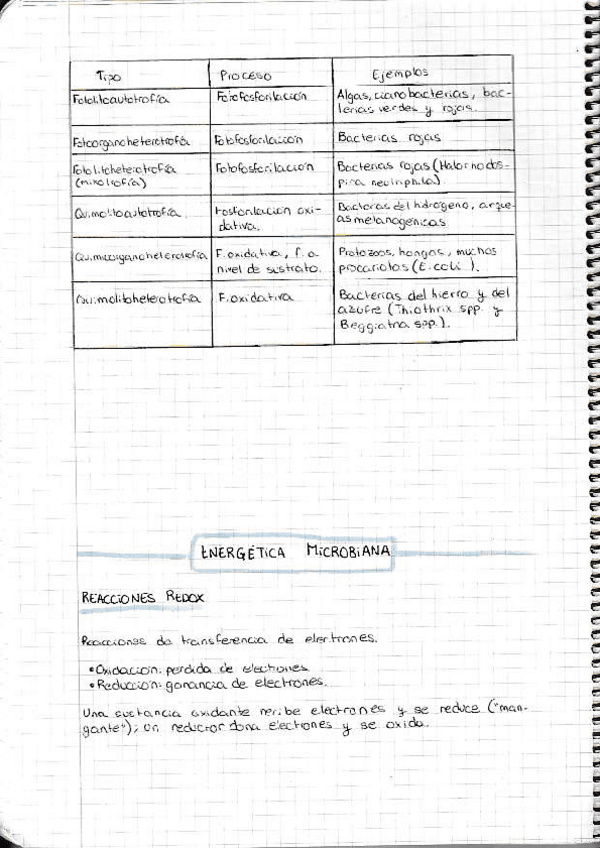 Tipo Proceso Ejemplos
Fotolitoautotrofía Fotofosforilación Algas, cianobacterias, bac-
terias verdes y rojas.
Fotoorganoheterotrofía Fotofosforilación Bacterias rojas
Fotolitoheterotrofía Fotofosforilación Bacterias rojas (Halorhodos-
(mixotrofía) pira neutriphila).
Quimolitoautotrofía Fosforilación oxi- Bacterias del hidrógeno, arque-
dativa. as metanogénicas
Quimioorganoheterotrofía F. oxidativa, f. a Protozoos, hongos, muchos
nivel de sustrato. procariotas (E. coli).
Quimolitoheterotrofía F. oxidativa Bacterias del hierro y del
azufre (Thiothrix spp. y
Beggiatna spp.).
ENERGÉTICA MICROBIANA
REACCIONES REDOX
Reacciones de transferencia de electrones.
• Oxidación: perdida de electrones
• Reducción: ganancia de electrones.
Una sustancia oxidante recibe electrones y se reduce ("man-
gante"); un reductor dona electrones y se oxida.